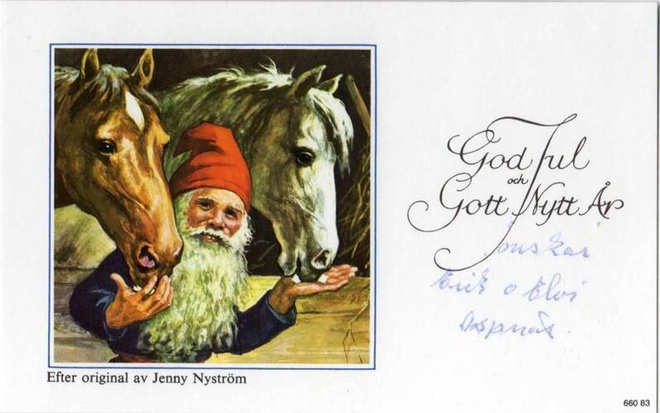 God Jul
och
Gott Nytt År
önskar
Erik o Elvi
Aspnäs.
Efter original av Jenny Nyström
660 83